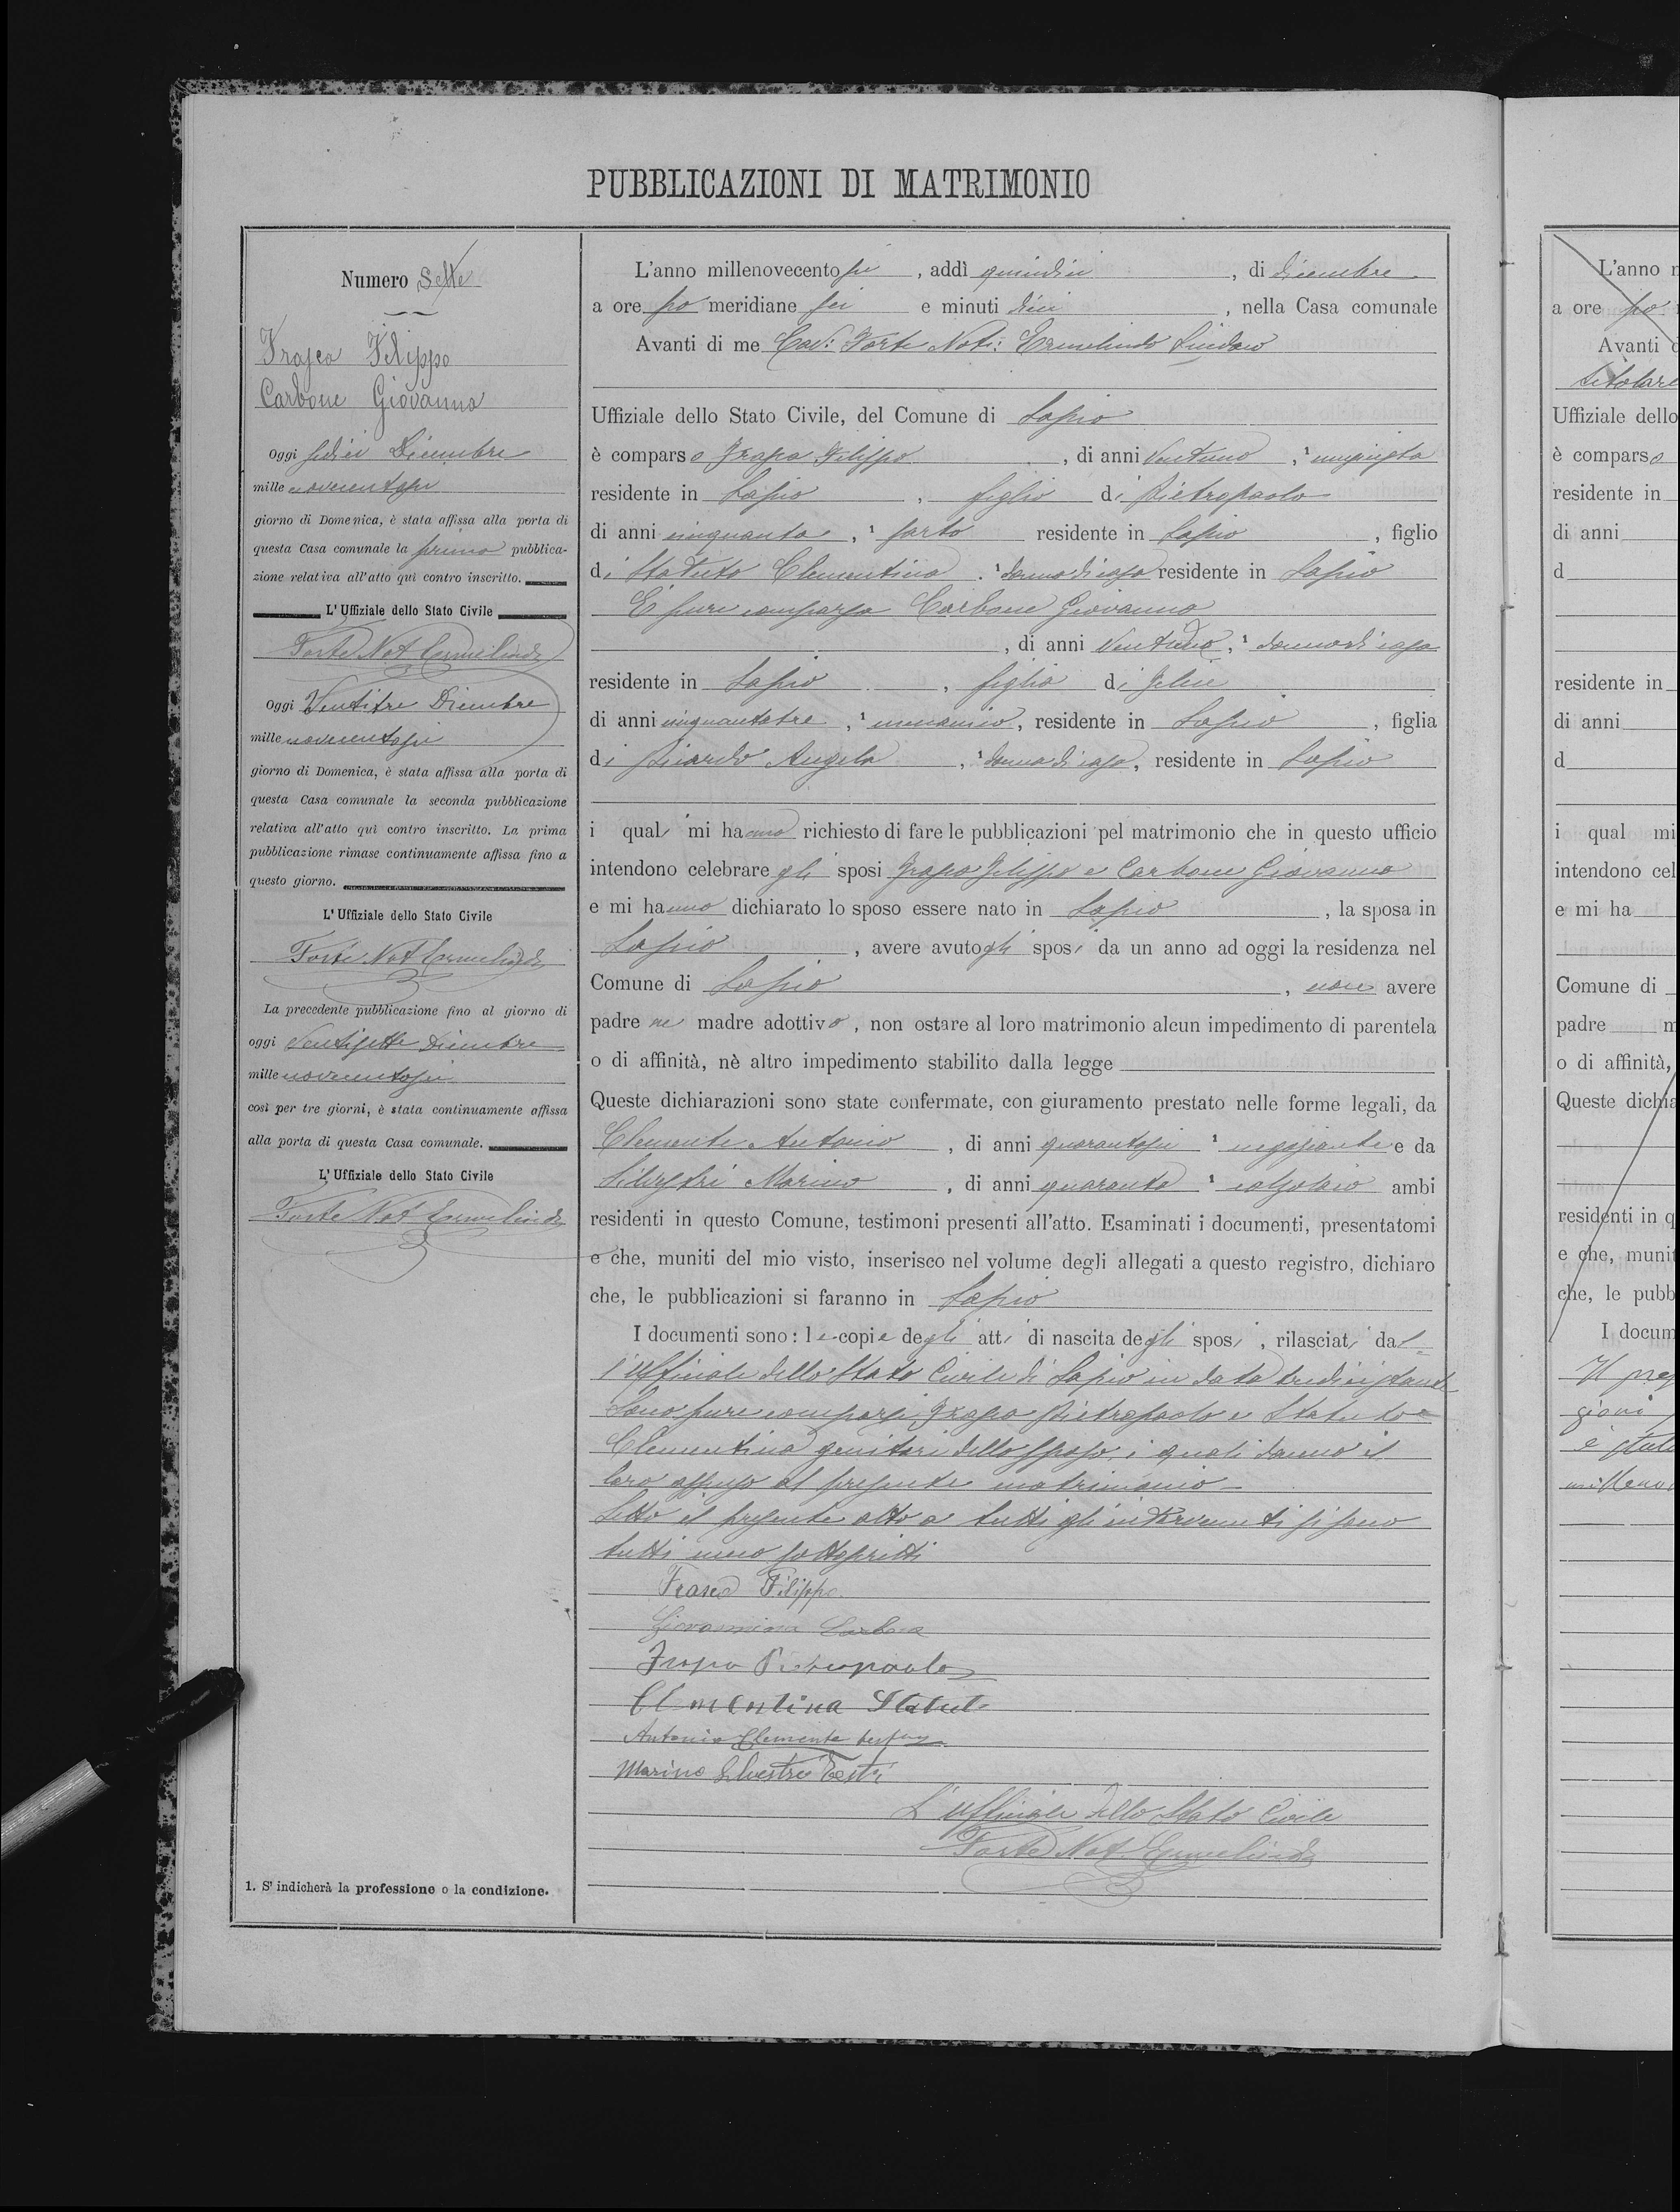 PUBBLICAZIONI DI MATRIMONIO
Numero Sette
Frasca Filippo
Carbone Giovanna
Oggi sedici Dicembre
mille novecentosei
giorno di Domenica, è stata affissa alla porta di
questa Casa comunale la prima pubblica-
zione relativa all'atto quì contro inscritto.
L'Uffiziale dello Stato Civile
Forte Not Ermelindo
Oggi Ventitre Dicembre
mille novecentosei
giorno di Domenica, è stata affissa alla porta di
questa Casa comunale la seconda pubblicazione
relativa all'atto quì contro inscritto. La prima
pubblicazione rimase continuamente affissa fino a
questo giorno.
L'Uffiziale dello Stato Civile
Forte Not Ermelindo
La precedente pubblicazione fino al giorno di
oggi Ventisette Dicembre
mille novecentosei
così per tre giorni, è stata continuamente affissa
alla porta di questa Casa comunale.
L'Uffiziale dello Stato Civile
Forte Not Ermelindo
1. S'indicherà la professione o la condizione.
L'anno millenovecento sei, addì quindici, di dicembre
a ore po meridiane sei e minuti dieci, nella Casa comunale
Avanti di me Cav: Forte Not: Ermelindo Sindaco
Uffiziale dello Stato Civile, del Comune di Lapio
è comparso Frasca Filippo, di anni Ventuno, ¹ musicista
residente in Lapio, figlio di Pietropaolo
di anni cinquanta, ¹ sarto residente in Lapio, figlio
di Statuto Clementina, ¹ donna di casa residente in Lapio
E' pure comparsa Carbone Giovanna
, di anni Ventuno, ¹ donna di casa
residente in Lapio, figlia di Felice
di anni cinquantatre, ¹ meccanico, residente in Lapio, figlia
di Picardo Angela, ¹ donna di casa, residente in Lapio
i quali mi hanno richiesto di fare le pubblicazioni pel matrimonio che in questo ufficio
intendono celebrare gli sposi Frasca Filippo e Carbone Giovanna
e mi hanno dichiarato lo sposo essere nato in Lapio, la sposa in
Lapio, avere avuto gli sposi da un anno ad oggi la residenza nel
Comune di Lapio, non avere
padre ne madre adottivo, non ostare al loro matrimonio alcun impedimento di parentela
o di affinità, nè altro impedimento stabilito dalla legge
Queste dichiarazioni sono state confermate, con giuramento prestato nelle forme legali, da
Clemente Antonio, di anni quarantasei ¹ negoziante e da
Silvestri Marino, di anni quaranta ¹ calzolaio ambi
residenti in questo Comune, testimoni presenti all'atto. Esaminati i documenti, presentatomi
e che, muniti del mio visto, inserisco nel volume degli allegati a questo registro, dichiaro
che, le pubblicazioni si faranno in Lapio
I documenti sono: le copie degli atti di nascita degli sposi, rilasciati dal-
l'Ufficiale dello Stato Civile di Lapio in data tredici stante
Sono pure comparsi Frasca Pietropaolo e Statuto
Clementina genitori dello sposo, i quali danno il
loro assenso al presente matrimonio
Letto il presente atto a tutti gli intervenuti si sono
tutti meco sottoscritti
Frasca Filippo
Giovannina Carbone
Frasca Pietropaolo
Clementina Statuto
Antonio Clemente
Marino Silvestri Testi
L'Ufficiale dello Stato Civile
Forte Not. Ermelindo
L'anno
a ore po
Avanti
titolare
Uffiziale dello
è comparso
residente in
di anni
d
residente in
di anni
d
i qual mi
intendono cel
e mi ha
Comune di
padre
o di affinità,
Queste dichia
residenti in q
e che, munit
che, le pubb
I docum
Il
è